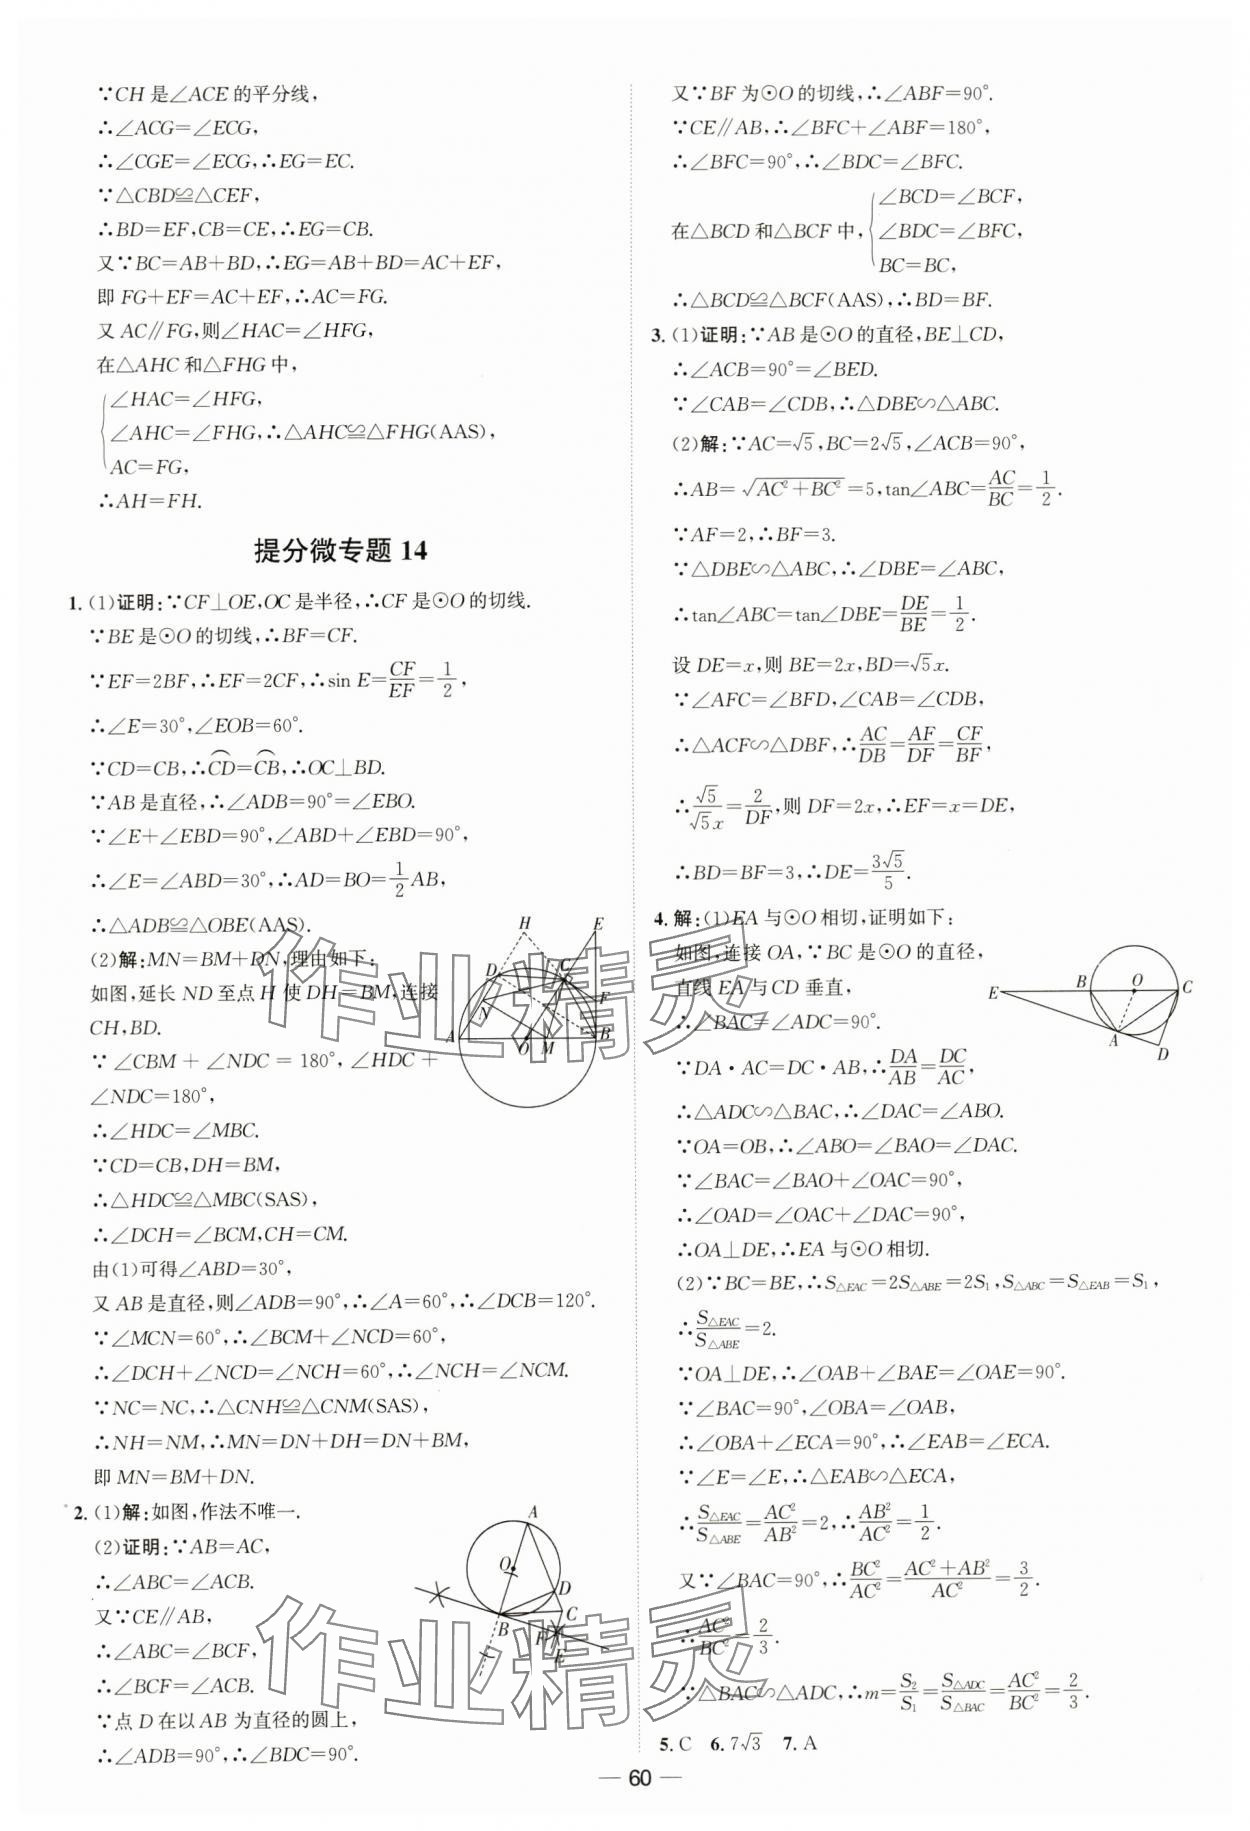 ∵CH 是∠ACE 的平分线，
∴∠ACG=∠ECG，
∴∠CGE=∠ECG，∴EG=EC.
∵△CBD≌△CEF，
∴BD=EF，CB=CE，∴EG=CB.
又∵BC=AB+BD，∴EG=AB+BD=AC+EF，
即 FG+EF=AC+EF，∴AC=FG.
又 AC∥FG，则∠HAC=∠HFG，
在△AHC 和△FHG 中，
∠HAC=∠HFG，
∠AHC=∠FHG，∴△AHC≌△FHG(AAS)，
AC=FG，
∴AH=FH.
提分微专题 14
1. (1)证明：∵CF⊥OE，OC 是半径，∴CF 是⊙O 的切线.
∵BE 是⊙O 的切线，∴BF=CF.
∵EF=2BF，∴EF=2CF，∴sin E=CF/EF=1/2，
∴∠E=30°，∠EOB=60°.
∵CD=CB，∴⌒CD=⌒CB，∴OC⊥BD.
∵AB 是直径，∴∠ADB=90°=∠EBO.
∵∠E+∠EBD=90°，∠ABD+∠EBD=90°，
∴∠E=∠ABD=30°，∴AD=BO=1/2 AB，
∴△ADB≌△OBE(AAS).
(2)解：MN=BM+DN，理由如下：
如图，延长 ND 至点 H 使 DH=BM，连接
CH，BD.
∵∠CBM+∠NDC=180°，∠HDC+
∠NDC=180°，
∴∠HDC=∠MBC.
∵CD=CB，DH=BM，
∴△HDC≌△MBC(SAS)，
∴∠DCH=∠BCM，CH=CM.
由(1)可得∠ABD=30°，
又 AB 是直径，则∠ADB=90°，∴∠A=60°，∴∠DCB=120°.
∵∠MCN=60°，∴∠BCM+∠NCD=60°，
∴∠DCH+∠NCD=∠NCH=60°，∴∠NCH=∠NCM.
∵NC=NC，∴△CNH≌△CNM(SAS)，
∴NH=NM，∴MN=DN+DH=DN+BM，
即 MN=BM+DN.
H E D C N F A O M B
2. (1)解：如图，作法不唯一.
(2)证明：∵AB=AC，
∴∠ABC=∠ACB.
又∵CE∥AB，
∴∠ABC=∠BCF，
∴∠BCF=∠ACB.
∵点 D 在以 AB 为直径的圆上，
∴∠ADB=90°，∴∠BDC=90°.
A O D C B F E
又∵BF 为⊙O 的切线，∴∠ABF=90°.
∵CE∥AB，∴∠BFC+∠ABF=180°，
∴∠BFC=90°，∴∠BDC=∠BFC.
在△BCD 和△BCF 中，
∠BCD=∠BCF，
∠BDC=∠BFC，
BC=BC，
∴△BCD≌△BCF(AAS)，∴BD=BF.
3. (1)证明：∵AB 是⊙O 的直径，BE⊥CD，
∴∠ACB=90°=∠BED.
∵∠CAB=∠CDB，∴△DBE∽△ABC.
(2)解：∵AC=√5，BC=2√5，∠ACB=90°，
∴AB=√(AC²+BC²)=5，tan∠ABC=AC/BC=1/2.
∵AF=2，∴BF=3.
∵△DBE∽△ABC，∴∠DBE=∠ABC，
∴tan∠ABC=tan∠DBE=DE/BE=1/2.
设 DE=x，则 BE=2x，BD=√5x.
∵∠AFC=∠BFD，∠CAB=∠CDB，
∴△ACF∽△DBF，∴AC/DB=AF/DF=CF/BF，
∴√5/√5x=2/DF，则 DF=2x，∴EF=x=DE，
∴BD=BF=3，∴DE=3√5/5.
4. 解：(1)EA 与⊙O 相切，证明如下：
如图，连接 OA，∵BC 是⊙O 的直径，
直线 EA 与 CD 垂直，
∴∠BAC=∠ADC=90°.
∵DA·AC=DC·AB，∴DA/AB=DC/AC，
∴△ADC∽△BAC，∴∠DAC=∠ABO.
∵OA=OB，∴∠ABO=∠BAO=∠DAC.
∵∠BAC=∠BAO+∠OAC=90°，
∴∠OAD=∠OAC+∠DAC=90°，
∴OA⊥DE，∴EA 与⊙O 相切.
(2)∵BC=BE，∴S△EAC=2S△ABE=2S₁，S△ABC=S△EAB=S₁，
∴S△EAC/S△ABE=2.
∵OA⊥DE，∴∠OAB+∠BAE=∠OAE=90°.
∵∠BAC=90°，∠OBA=∠OAB，
∴∠OBA+∠ECA=90°，∴∠EAB=∠ECA.
∵∠E=∠E，∴△EAB∽△ECA，
∴S△EAC/S△ABE=AC²/AB²=2，∴AB²/AC²=1/2.
又∵∠BAC=90°，∴BC²/AC²=(AC²+AB²)/AC²=3/2.
∴AC²/BC²=2/3.
∵△BAC∽△ADC，∴m=S₂/S₁=S△ADC/S△BAC=AC²/BC²=2/3.
E B O C A D
5. C 6. 7√3 7. A
— 60 —
作业精灵
作业精灵